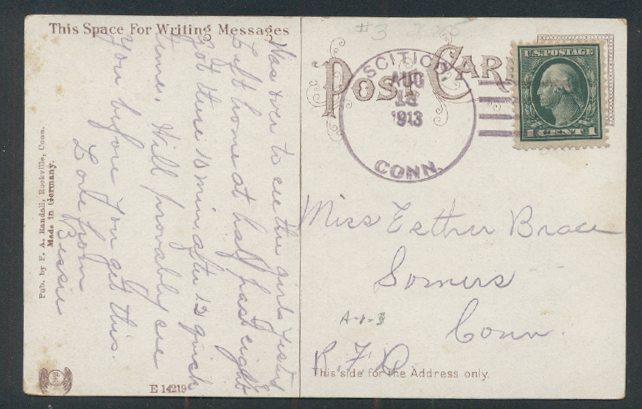 This Space For Writing Messages
Was over to see the girls yesterd
Left home at half past eight
got there 15 min. after 12 quick
time. Will provably see
you before you get this.
Love from
Bessie
Pub. by F. A. Randall, Rockville, Conn.
Made in Germany.
E 14219
#3
POST CARD
SCITICO
AUG
1913
CONN.
U.S. POSTAGE
1 CENT 1
Miss Esther Brace
Somers
Conn.
R.F.D.
A-1-3
This side for the Address only.